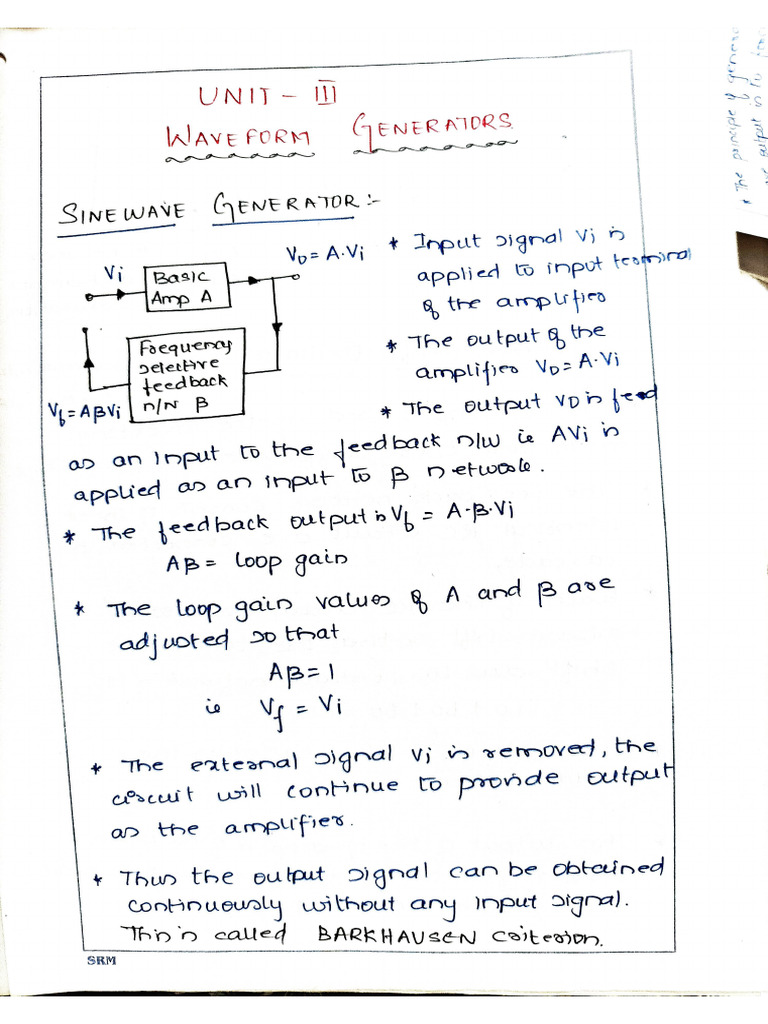 UNIT - III
WAVEFORM GENERATORS
SINEWAVE GENERATOR :-
Vi
Basic
Amp A
VO = A·Vi
Frequency
selective
feedback
n/w β
Vf = AβVi
* Input signal Vi is
applied to input terminal
of the amplifier
* The output of the
amplifier VO = A·Vi
* The output VO is feed
as an input to the feedback n/w ie AVi is
applied as an input to β network.
* The feedback output is Vf = A·β·Vi
Aβ = loop gain
* The loop gain values of A and β are
adjusted so that
Aβ = 1
ie Vf = Vi
* The external signal Vi is removed, the
circuit will continue to provide output
as the amplifier.
* Thus the output signal can be obtained
continuously without any input signal.
This is called BARKHAUSEN criterion.
SRM
* The principle of
output is to